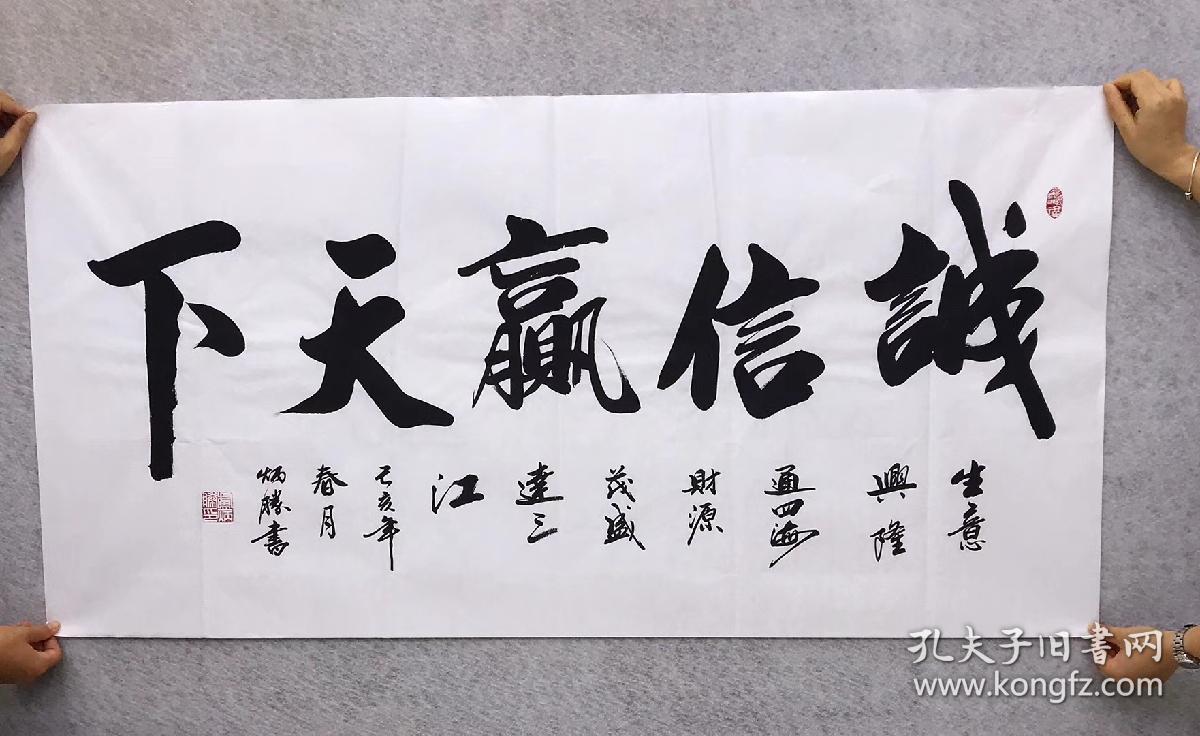 誠信贏天下
生意
興隆
通四海
財源
茂盛
達三
江
己亥年
春月
炳勝書
孔夫子旧書网
www.kongfz.com